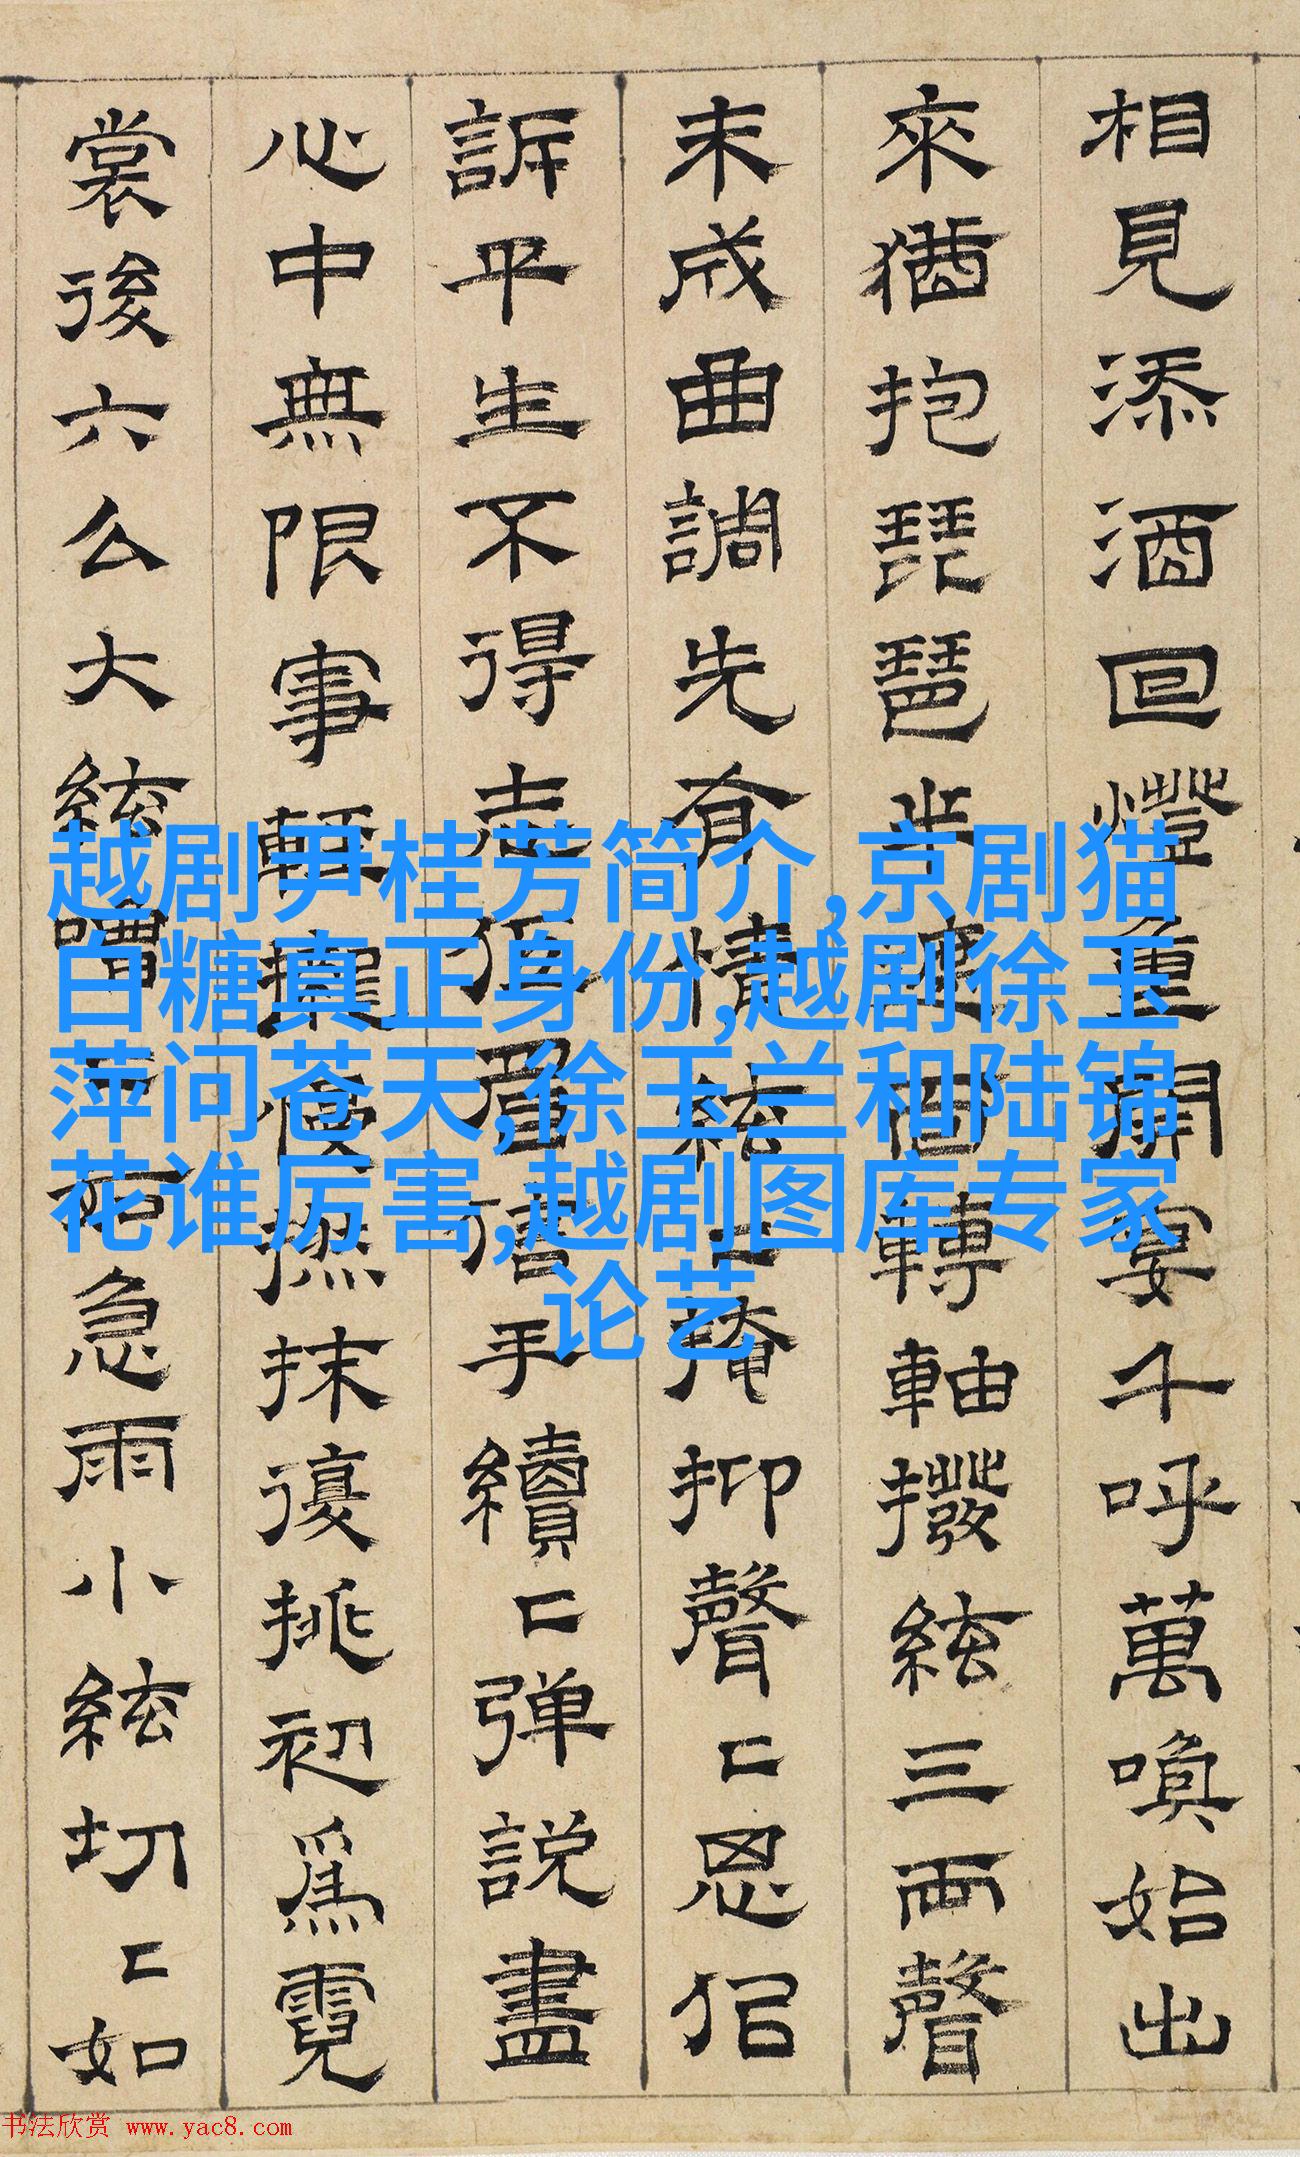 相見添酒回燈重開宴千呼萬喚始出
來猶抱琵琶半遮面轉軸撥絃三兩聲
未成曲調先有情絃〻掩抑聲〻思似
訴平生不得志低眉信手續〻弹說盡
心中無限事輕攏慢撚抹復挑初爲霓
裳後六么大絃嘈〻如急雨小絃切〻如
越剧尹桂芳简介,京剧猫
白糖真正身份,越剧徐玉
萍问苍天,徐玉兰和陆锦
花谁厉害,越剧图库专家
论艺
书法欣赏 www.yac8.com